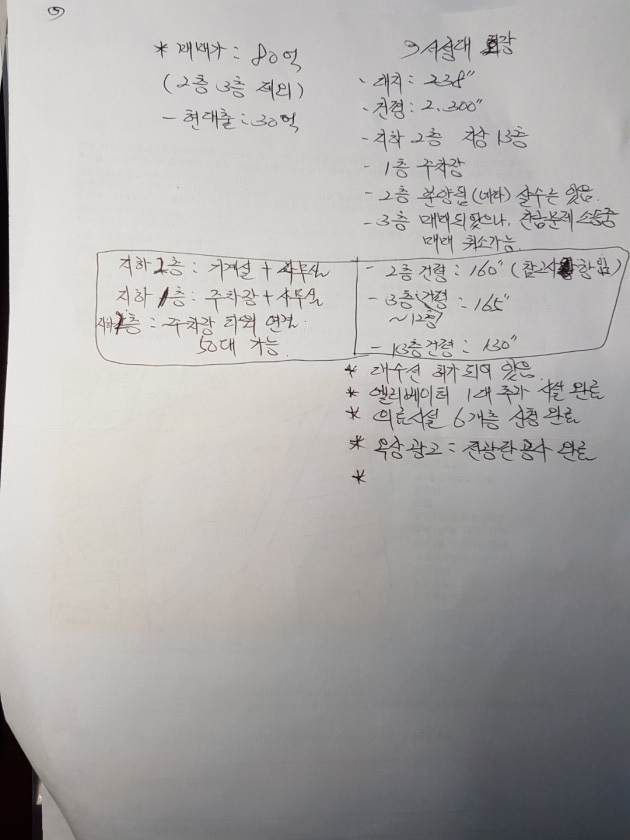 ⑤
* 매매가 : 80억
(2층 3층 제외)
- 현대출 : 30억
3 시설대
- 대지 : 238"
- 건평 : 2.300"
- 지하 2층 지상 13층
- 1층 주차장
- 2층 분양됨 (네라) 살수는 있음.
- 3층 매매되었으나, 잔금문제 소송중
매매 취소가능.
지하 2층 : 기계설 + 사무실
지하 1층 : 주차장 + 사무실
층 : 주차장 타워 연결.
50대 가능.
- 2층건평 : 160"
- 3층건평 : 165"
~12층
- 13층건평 : 130"
* 대수선 허가 되어 있음.
* 엘리베이터 1대 추가 시설 완료
* 의료시설 6개층 신청 완료
* 옥상광고 = 전광판공사 완료
*